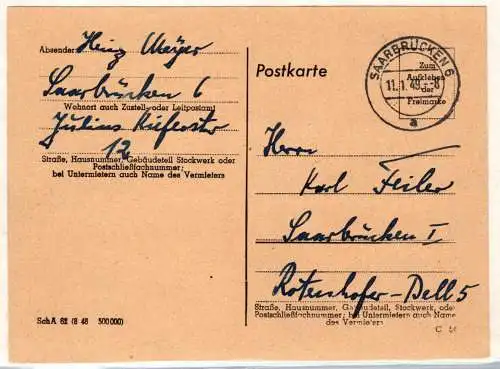 Absender: Heinz Meyer
Saarbrücken 6
Wohnort auch Zustell- oder Leitpostamt
Julius Kieferstr
12
Straße, Hausnummer, Gebäudeteil Stockwerk oder
Postschließfachnummer;
bei Untermietern auch Name des Vermieters
SchA 62 (8 48 500 000)
Postkarte
SAARBRÜCKEN 6
11.1.49.–8
a
Zum
Aufkleben
der
Freimarke
Herrn
Karl Feiler
Saarbrücken I
Rotenhofer-Dell 5
Straße, Hausnummer, Gebäudeteil, Stockwerk, oder
Postschließfachnummer; bei Untermietern auch Name
des Vermieters